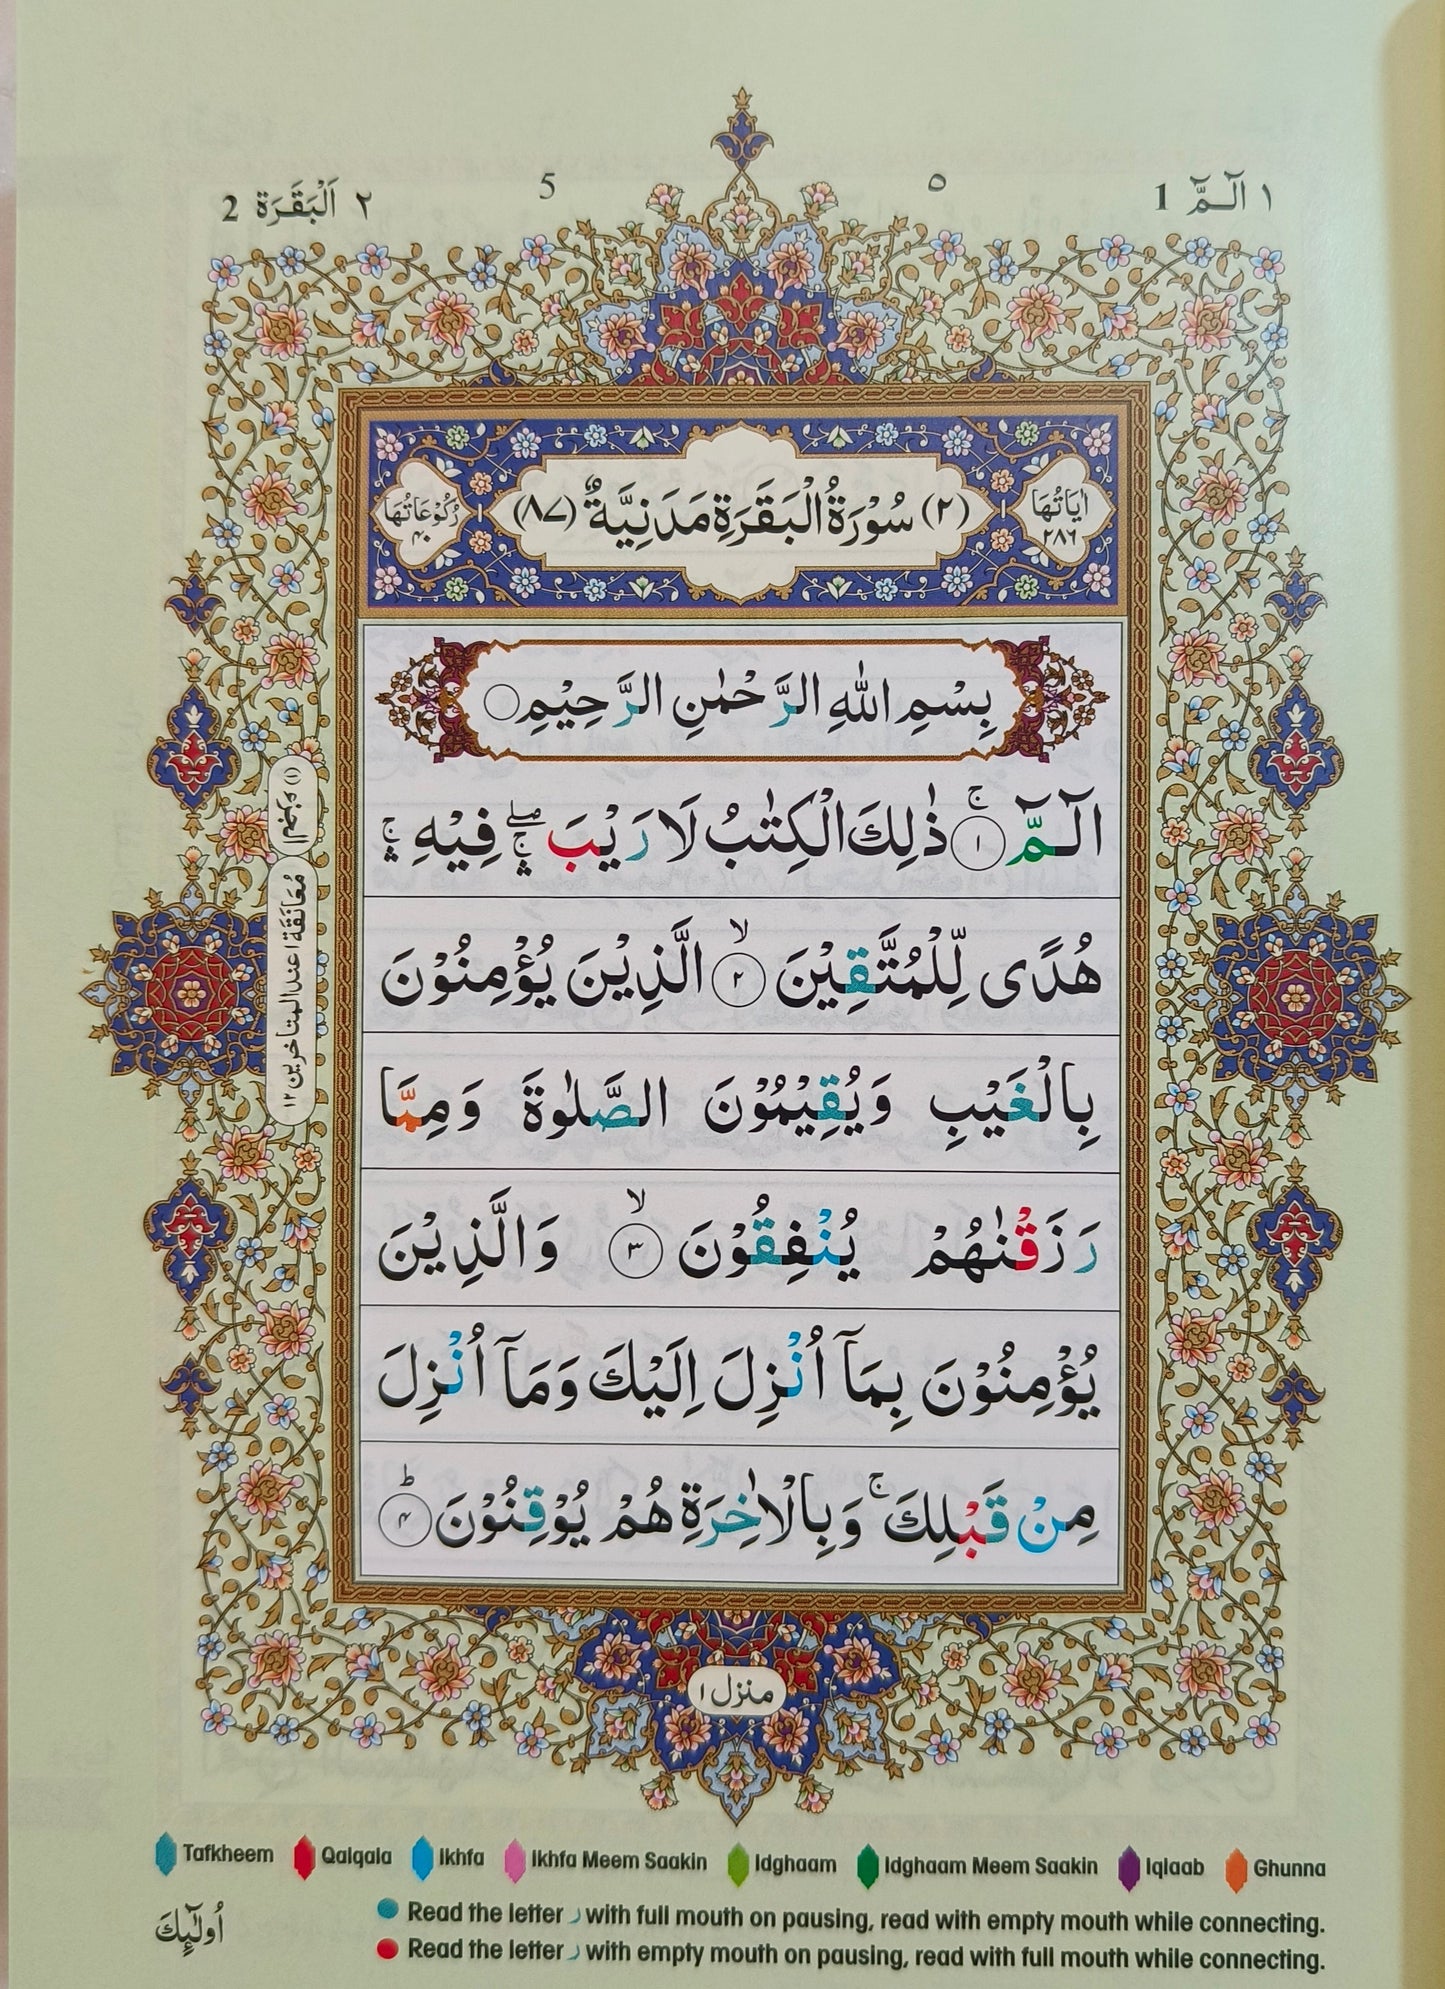 ١ الٓـمّٓ 1
٥
5
٢ اَلْبَقَرَة 2
اٰيَاتُهَا ٢٨٦
(٢) سُوْرَةُ الْبَقَرَةِ مَدَنِيَّةٌ (٨٧)
رُكُوْعَاتُهَا ٤٠
بِسْمِ اللّٰهِ الرَّحْمٰنِ الرَّحِيْمِ ○
الٓـمّٓ ۚ ١ ذٰلِكَ الْكِتٰبُ لَا رَيْبَ ۖۛۚ فِيْهِ ۛۚ
هُدًى لِّلْمُتَّقِيْنَ ۙ ٢ الَّذِيْنَ يُؤْمِنُوْنَ
بِالْغَيْبِ وَيُقِيْمُوْنَ الصَّلٰوةَ وَمِمَّا
رَزَقْنٰهُمْ يُنْفِقُوْنَ ۙ ٣ وَالَّذِيْنَ
يُؤْمِنُوْنَ بِمَآ اُنْزِلَ اِلَيْكَ وَمَآ اُنْزِلَ
مِنْ قَبْلِكَ ۚ وَبِالْاٰخِرَةِ هُمْ يُوْقِنُوْنَ ؕ ٤
مُعَانَقَة ١ عند المتاخرين ١٢
منزل ١
Tafkheem Qalqala Ikhfa Ikhfa Meem Saakin Idghaam Idghaam Meem Saakin Iqlaab Ghunna
Read the letter ر with full mouth on pausing, read with empty mouth while connecting.
Read the letter ر with empty mouth on pausing, read with full mouth while connecting.
اُولٰٓئِكَ